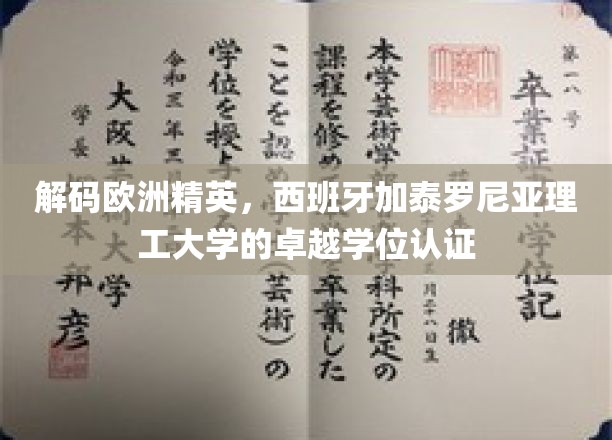 解码欧洲精英，西班牙加泰罗尼亚理
工大学的卓越学位认证
第一八号
卒業証
学位記
徹
月二十八日生
本学芸術学
科所定の
課程を修め
卒業した
ことを認め
(芸術)の
学位を授与
令和三年三
大阪芸
大学
学長
邦彦